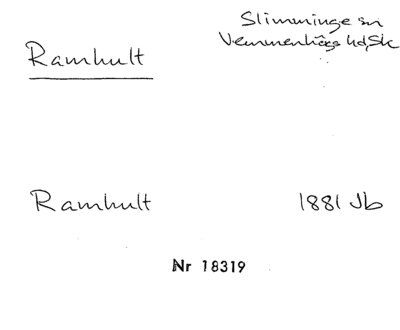 Slimminge sn
Vemmenhögs hd, Sk
Ramhult
Ramhult 1881 Jb
Nr 18319